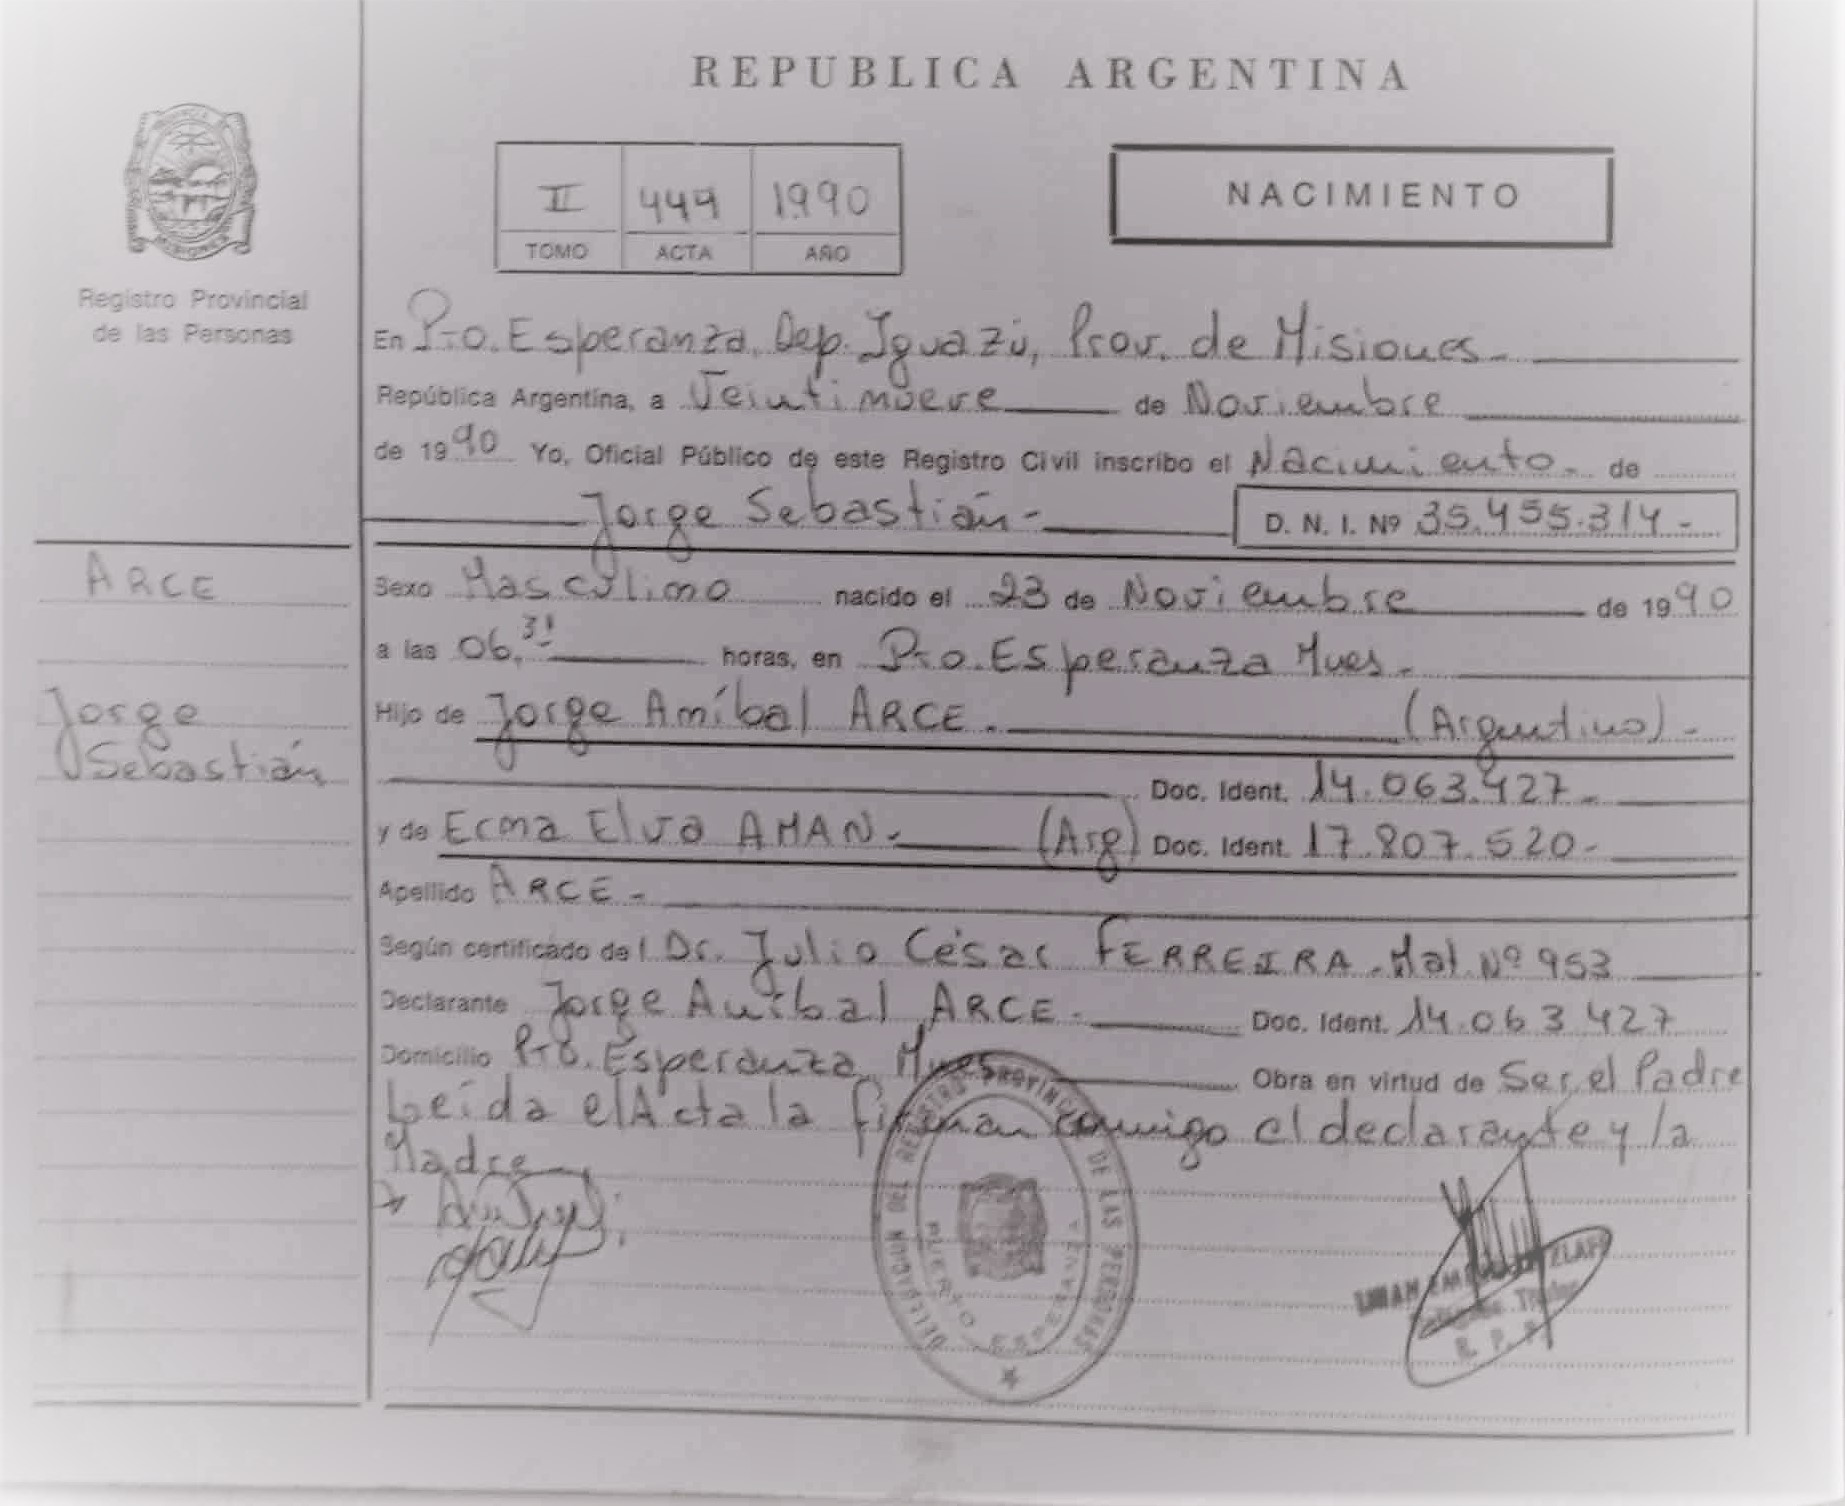 REPUBLICA ARGENTINA
II 449 1990
TOMO ACTA AÑO
NACIMIENTO
Registro Provincial
de las Personas
En Pto. Esperanza, Dep. Iguazú, Prov. de Misiones -
República Argentina, a Veintinueve de Noviembre
de 1990 Yo, Oficial Público de este Registro Civil inscribo el Nacimiento. de
Jorge Sebastián - D. N. I. Nº 35.455.314 -
ARCE
Jorge
Sebastián
Sexo Masculino nacido el 23 de Noviembre de 1990
a las 06,31 horas, en Pto. Esperanza Mnes.
Hijo de Jorge Aníbal ARCE. (Argentino) -
Doc. Ident. 14.063.427 -
y de Erma Elva AMAN. - (Arg) Doc. Ident. 17.807.520 -
Apellido ARCE -
Según certificado del Dr. Julio César FERREIRA. Mat. Nº 953
Declarante Jorge Aníbal ARCE - Doc. Ident. 14.063.427
Domicilio Pto. Esperanza Mnes Obra en virtud de Ser el Padre
Leída el Acta la firman conmigo el declarante y la
Madre
DELEGACION DEL REGISTRO PROVINCIAL DE LAS PERSONAS
PUERTO ESPERANZA
R. P. P.